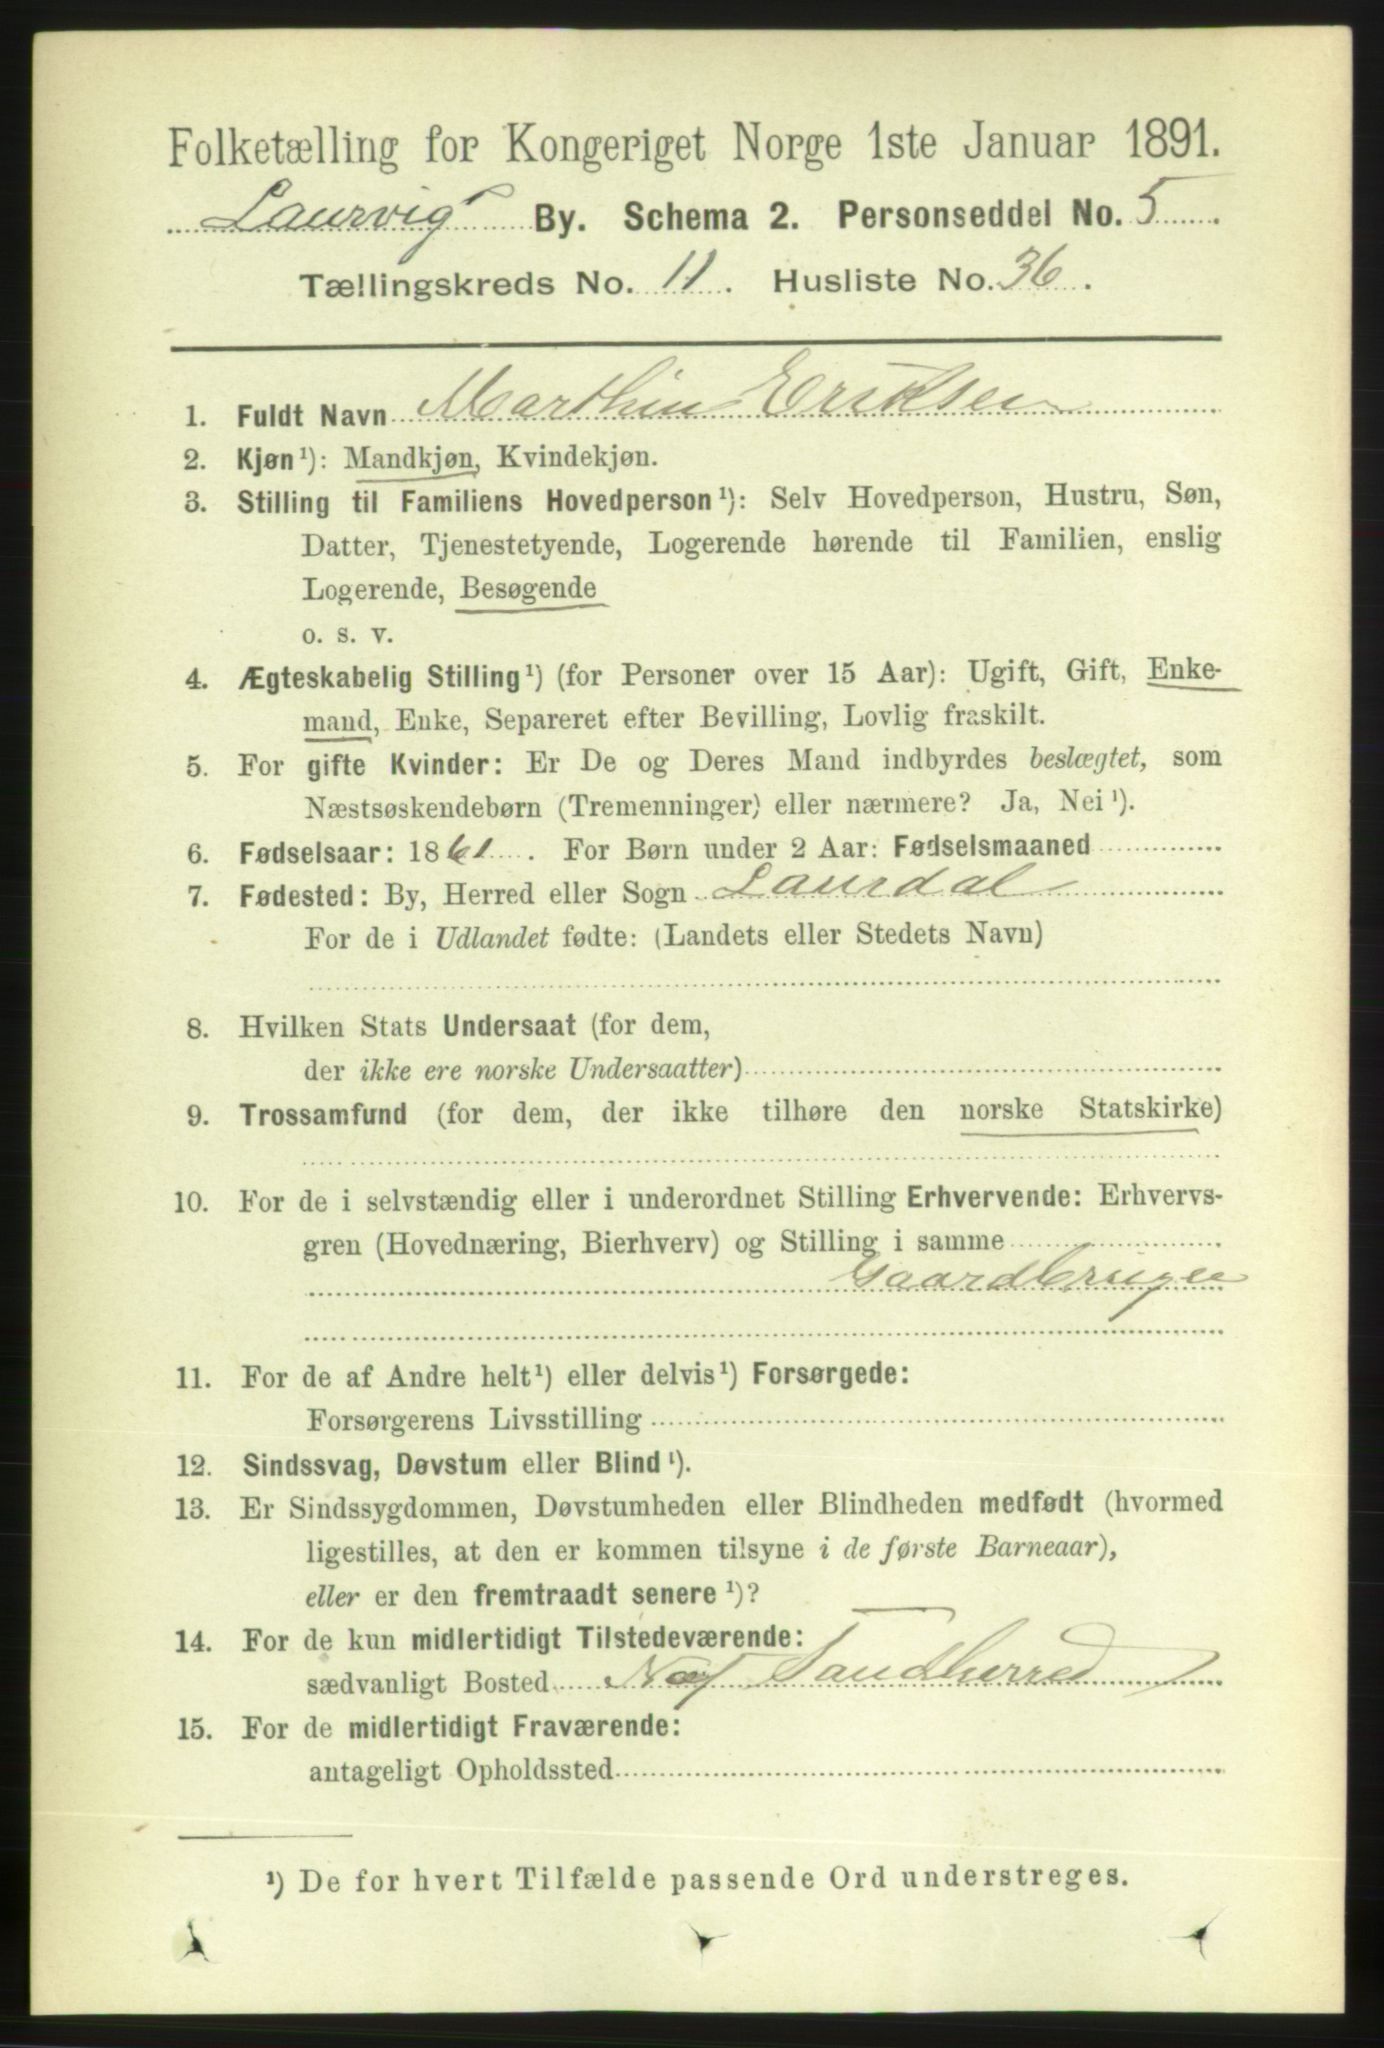 Folketælling for Kongeriget Norge 1ste Januar 1891.
Laurvig By. Schema 2. Personseddel No. 5
Tællingskreds No. 11. Husliste No. 36.
1. Fuldt Navn Marthin Eriksen
2. Kjøn¹): Mandkjøn, Kvindekjøn.
3. Stilling til Familiens Hovedperson¹): Selv Hovedperson, Hustru, Søn,
Datter, Tjenestetyende, Logerende hørende til Familien, enslig
Logerende, Besøgende
o. s. v.
4. Ægteskabelig Stilling¹) (for Personer over 15 Aar): Ugift, Gift, Enke-
mand, Enke, Separeret efter Bevilling, Lovlig fraskilt.
5. For gifte Kvinder: Er De og Deres Mand indbyrdes beslægtet, som
Næstsøskendebørn (Tremenninger) eller nærmere? Ja, Nei¹).
6. Fødselsaar: 1861. For Børn under 2 Aar: Fødselsmaaned
7. Fødested: By, Herred eller Sogn Laurdal
For de i Udlandet fødte: (Landets eller Stedets Navn)
8. Hvilken Stats Undersaat (for dem,
der ikke ere norske Undersaatter)
9. Trossamfund (for dem, der ikke tilhøre den norske Statskirke)
10. For de i selvstændig eller i underordnet Stilling Erhvervende: Erhvervs-
gren (Hovednæring, Bierhverv) og Stilling i samme
Gaardbruger
11. For de af Andre helt¹) eller delvis¹) Forsørgede:
Forsørgerens Livsstilling
12. Sindssvag, Døvstum eller Blind¹).
13. Er Sindssygdommen, Døvstumheden eller Blindheden medfødt (hvormed
ligestilles, at den er kommen tilsyne i de første Barneaar),
eller er den fremtraadt senere¹)?
14. For de kun midlertidigt Tilstedeværende:
sædvanligt Bosted Sandherred
15. For de midlertidigt Fraværende:
antageligt Opholdssted
¹) De for hvert Tilfælde passende Ord understreges.